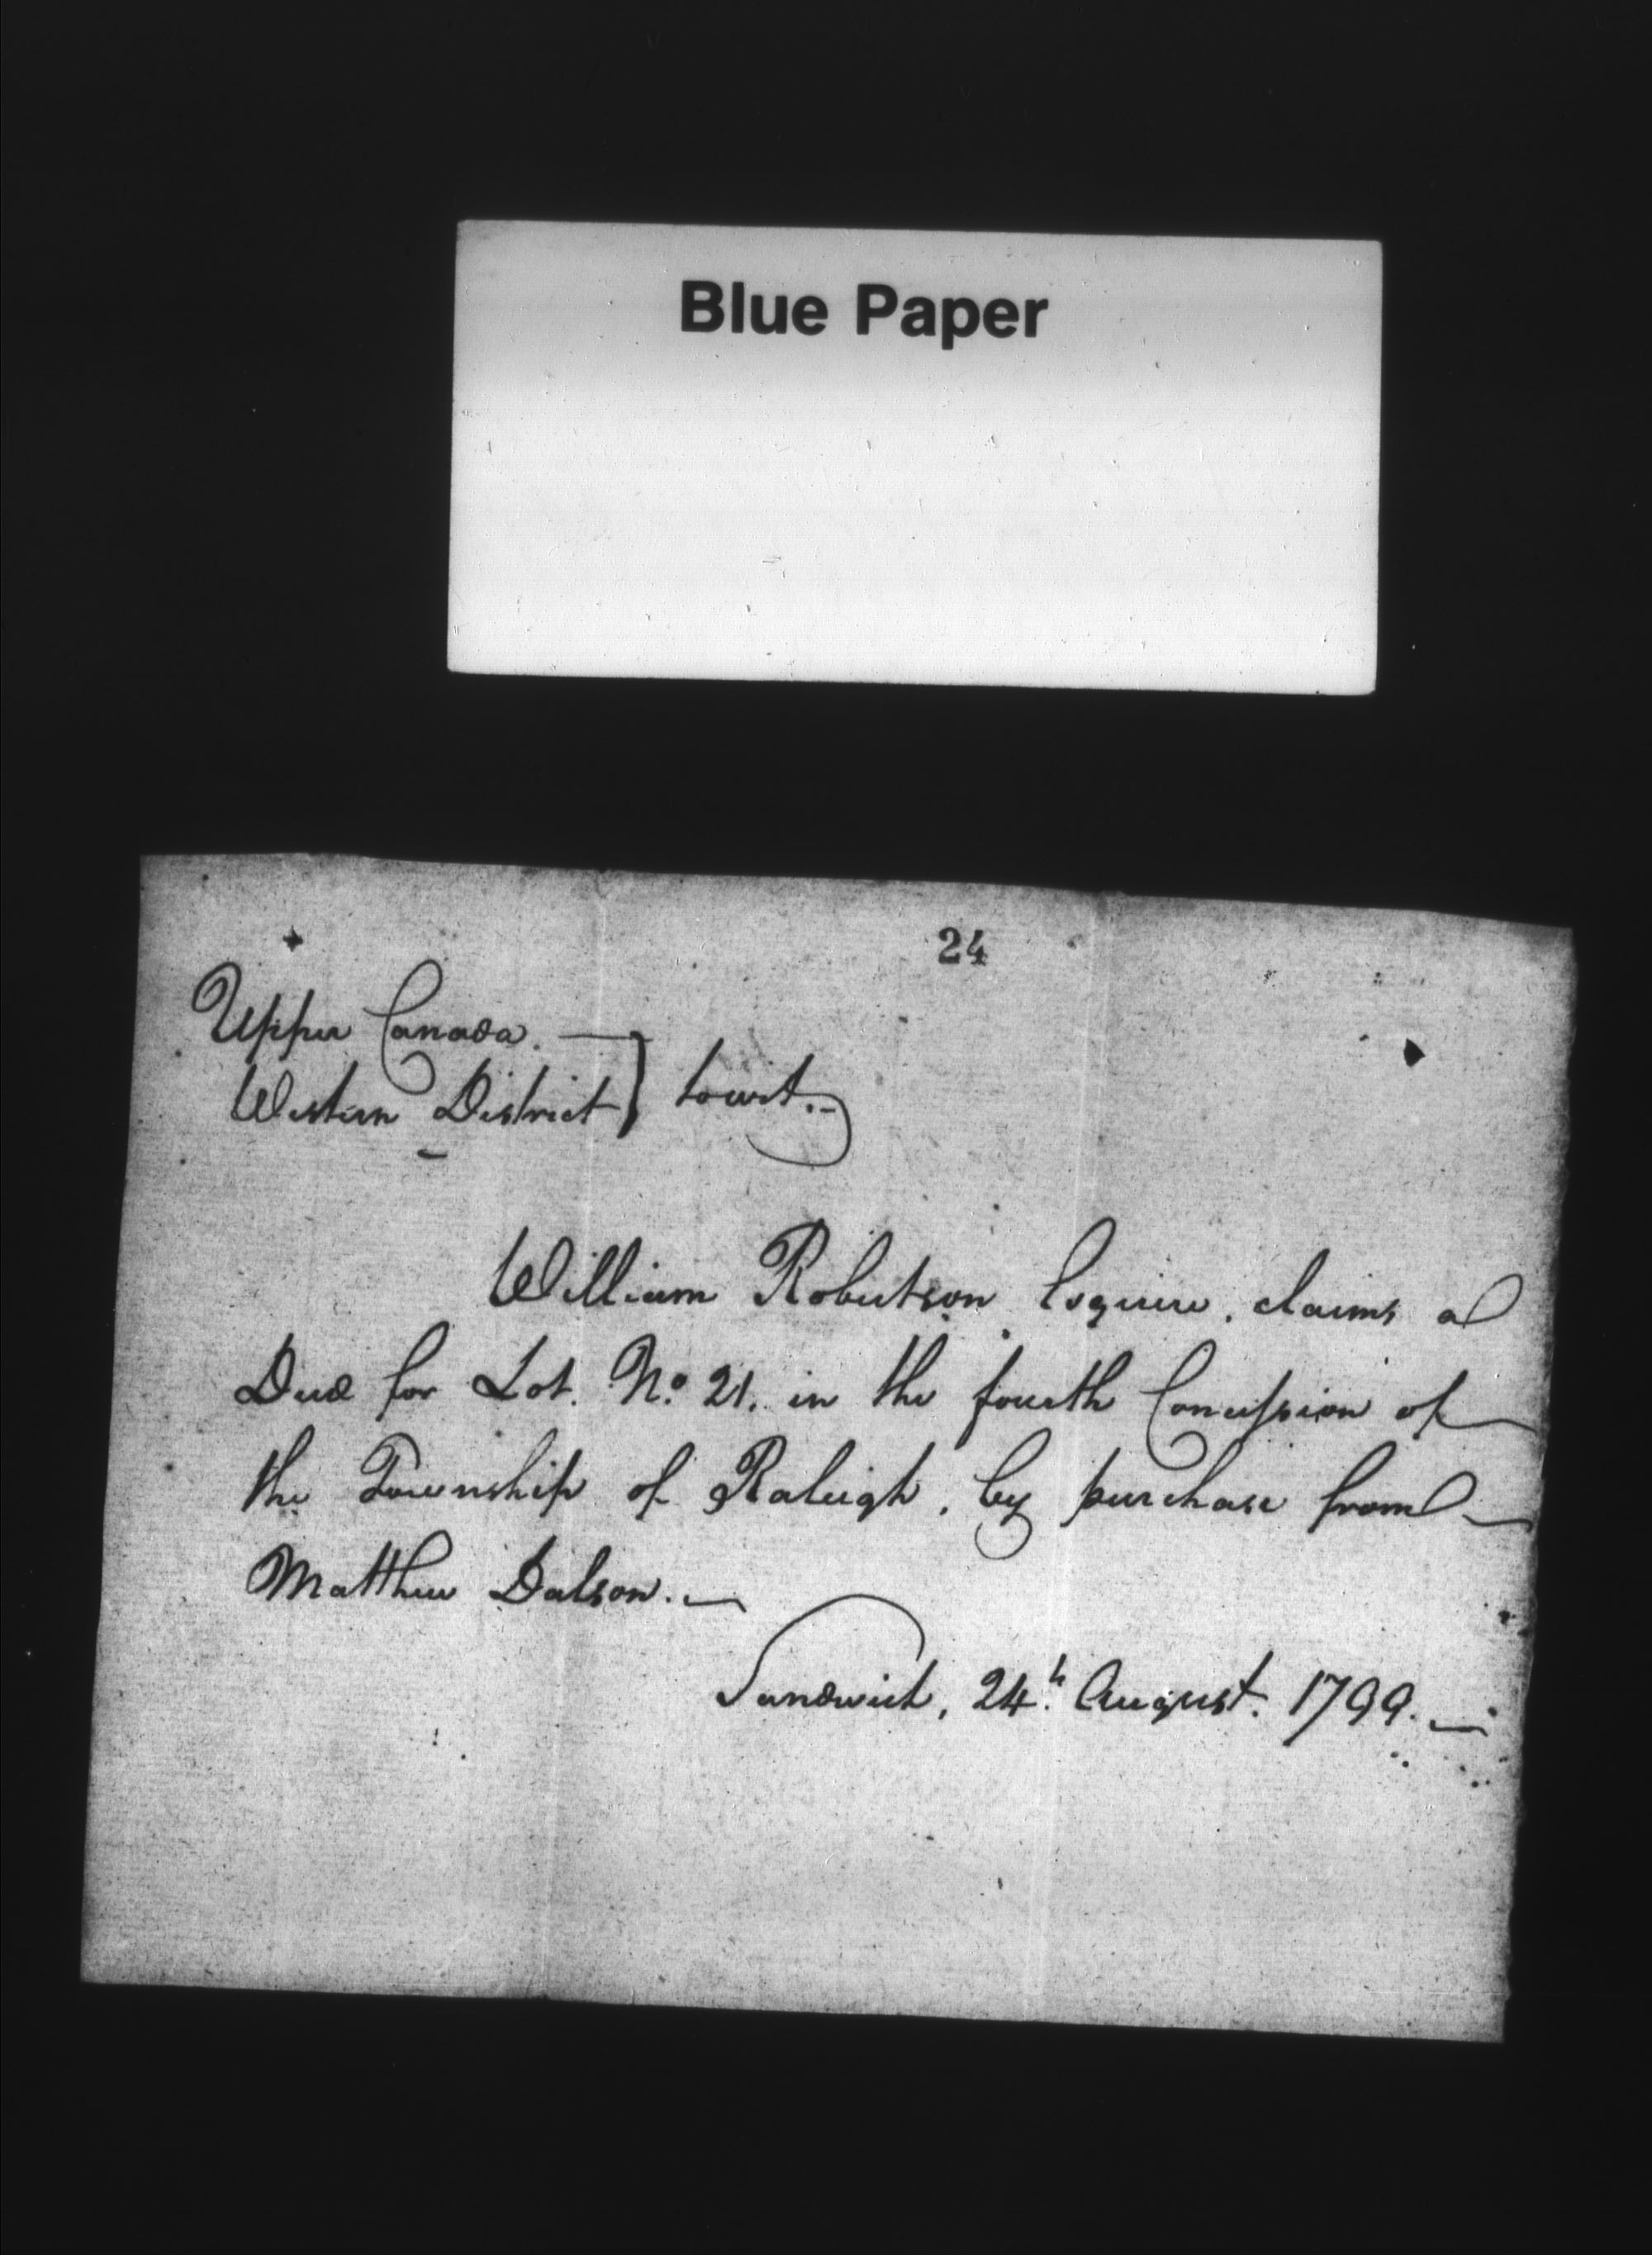 Blue Paper
24
Upper Canada. —
Western District } towit. -
William Robertson Esquire, claims a
Deed for Lot. No. 21. in the fourth Concession of
the Township of Raleigh, by purchase from
Matthew Dalson. —
Sandwich, 24th August. 1799. —